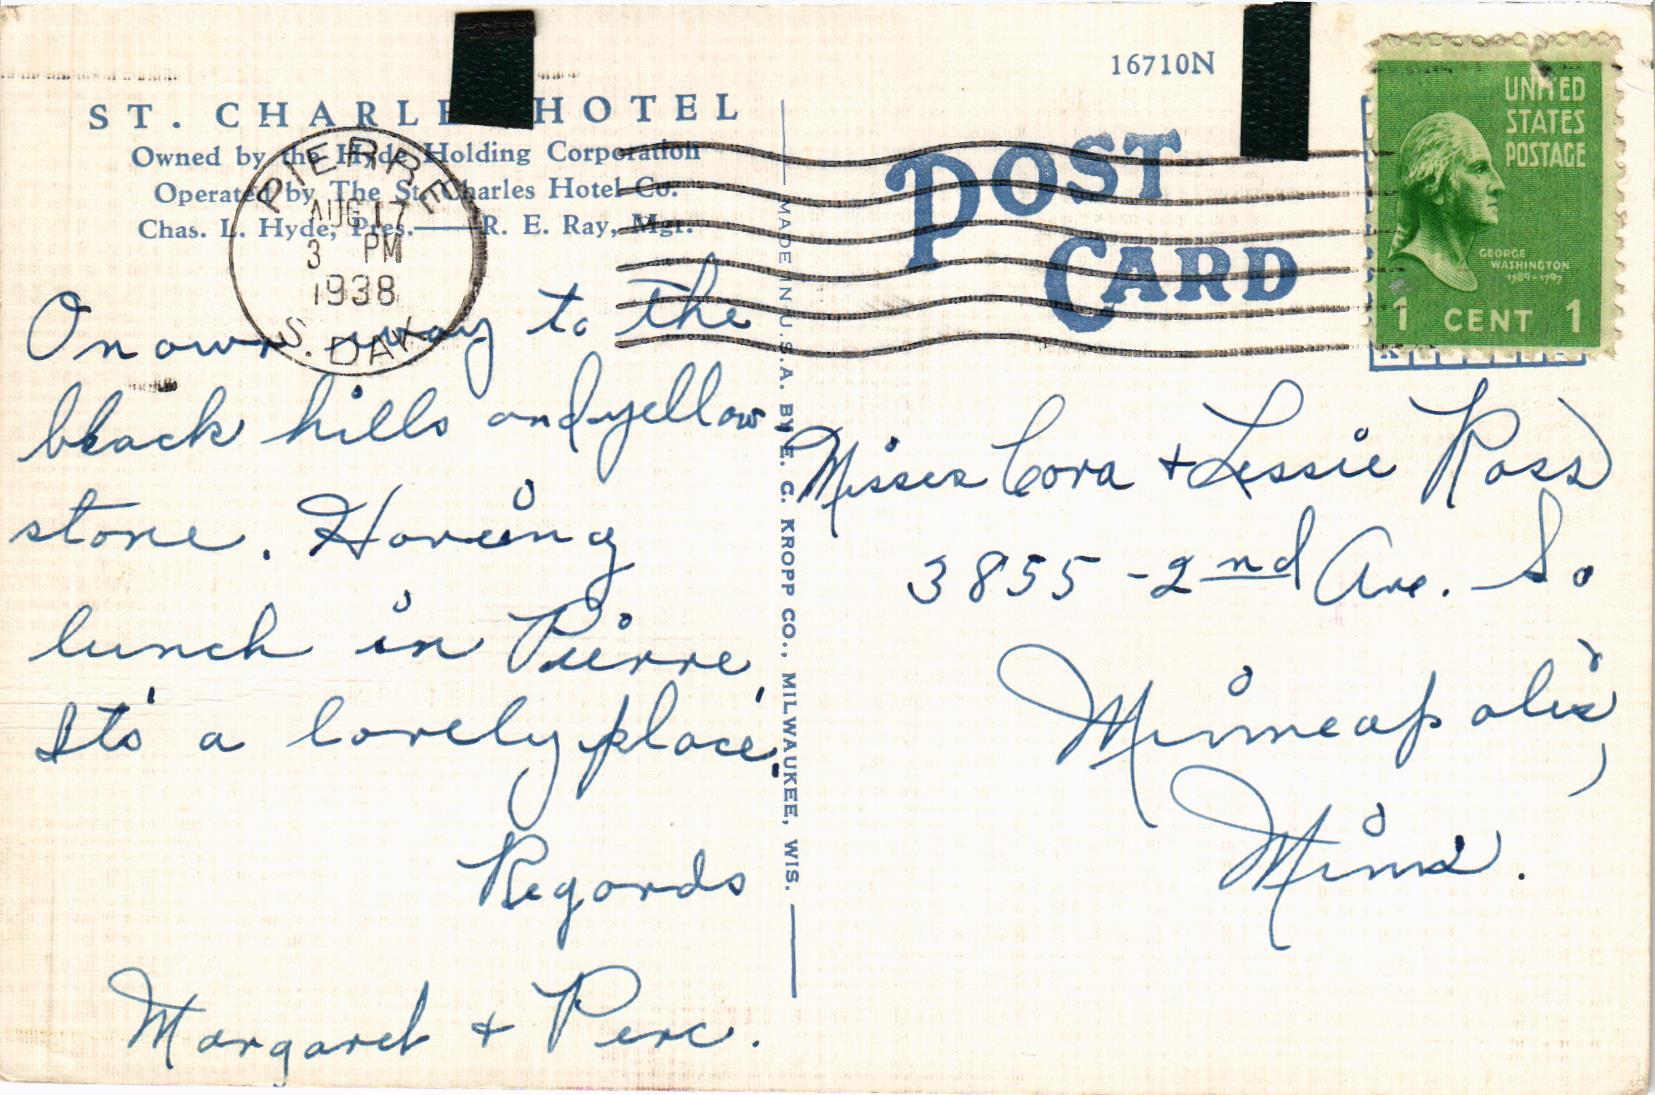 ST. CHARLES HOTEL
Owned by the Hyde Holding Corporation
Operated by The St. Charles Hotel Co.
Chas. L. Hyde, Pres.—R. E. Ray, Mgr.
PIERRE
AUG 17
3 PM
1938
S. DAK.
On our way to the
black hills and yellow
stone. Having
lunch in Pierre.
It's a lovely place.
Regards
Margaret + Perc.
MADE IN U.S.A. BY E. C. KROPP CO., MILWAUKEE, WIS.
16710N
POST
CARD
UNITED
STATES
POSTAGE
GEORGE
WASHINGTON
1789-1797
1 CENT 1
Misses Cora + Lessie Ross
3855 - 2nd Ave. So
Minneapolis,
Minn.